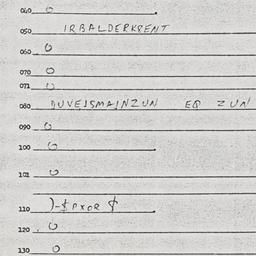 040 0
050 IRBALDERKRENT
060 0
070 0
071 0
080 DUVEISMAINZUN EQ ZUN
090 0
100 0
101 0
110 )-$PXOR $
120 0
130 0